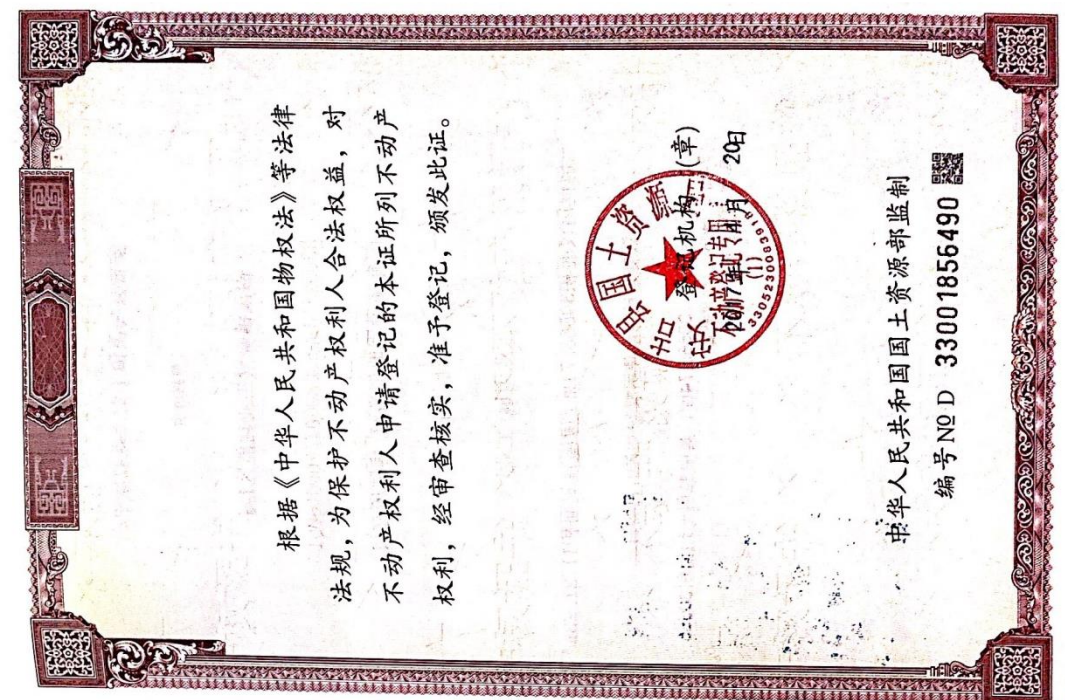 根据《中华人民共和国物权法》等法律
法规，为保护不动产权利人合法权益，对
不动产权利人申请登记的本证所列不动产
权利，经审查核实，准予登记，颁发此证。
安吉县国土资源局
登记机构(章)
不动产登记专用章
(1)
3305230083916
中华人民共和国国土资源部监制
编号NO D 33001856490